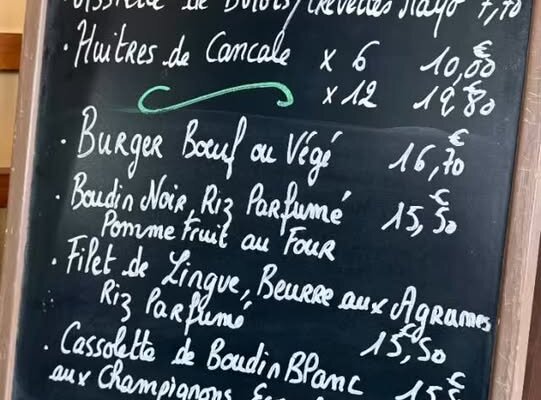 Assiette de Bulots/Crevettes Mayo 7,70
· Huitres de Cancale x 6 10,00 €
x 12 19,80 €
· Burger Bœuf ou Végé 16,70 €
· Boudin Noir, Riz Parfumé 15,50 €
Pomme Fruit au Four
· Filet de Lingue, Beurre aux Agrumes
Riz Parfumé 15,50 €
· Cassolette de Boudin Blanc
aux Champignons